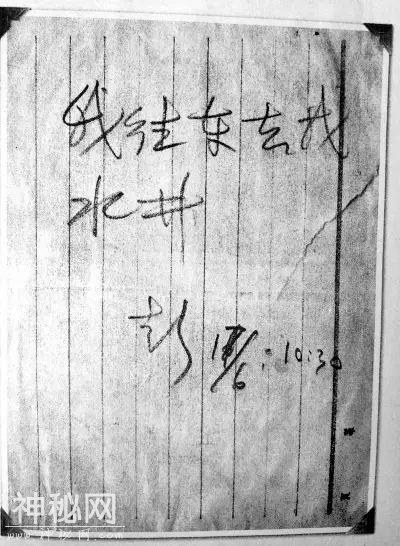 我往东去找
水井
彭 17/6: 10:30
神秘网